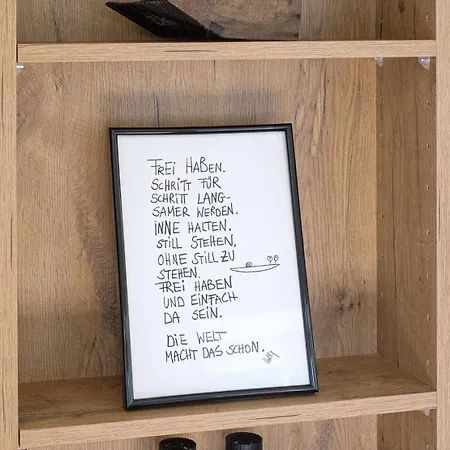 FREI HABEN.
SCHRITT FÜR
SCHRITT LANG-
SAMER WERDEN.
INNE HALTEN.
STILL STEHEN,
OHNE STILL ZU
STEHEN.
FREI HABEN
UND EINFACH
DA SEIN.
DIE WELT
MACHT DAS SCHON.